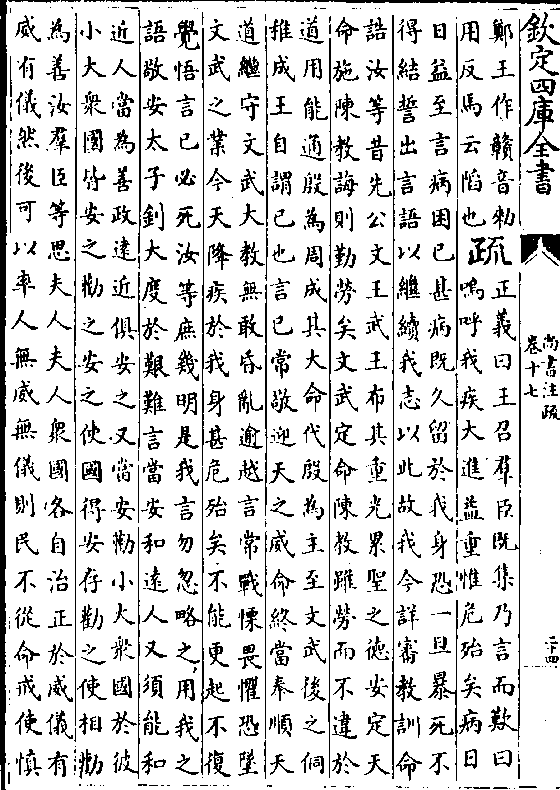 欽定四庫全書
尚書注疏
卷十七
二十四
鄭王作贛音勑
用反馬云陷也
疏
正義曰王召羣臣既集乃言而歎曰
嗚呼我疾大進益重惟危殆矣病日
日益至言病困已甚病既久留於我身恐一旦暴死不
得結誓出言語以繼續我志以此故我今詳審教訓命
誥汝等昔先公文王武王布其重光累聖之德安定天
命施陳教誨則勤勞矣文武定命陳教雖勞而不違於
道用能通殷為周成其大命代殷為主至文武後之侗
推成王自謂已也言已常敬迎天之威命終當奉順天
道繼守文武大教無敢昏亂逾越言常戰慄畏懼恐墜
文武之業今天降疾於我身甚危殆矣不能更起不復
覺悟言已必死汝等庶幾明是我言勿忽略之用我之
語敬安太子釗大度於艱難言當安和遠人又須能和
近人當為善政遠近俱安之又當安勸小大衆國於彼
小大衆國竹安之勸之安之使國得安存勸之使相勸
為善汝羣臣等思夫人夫人衆國各自治正於威儀有
威有儀然後可以率人無威無儀則民不從命戒使慎